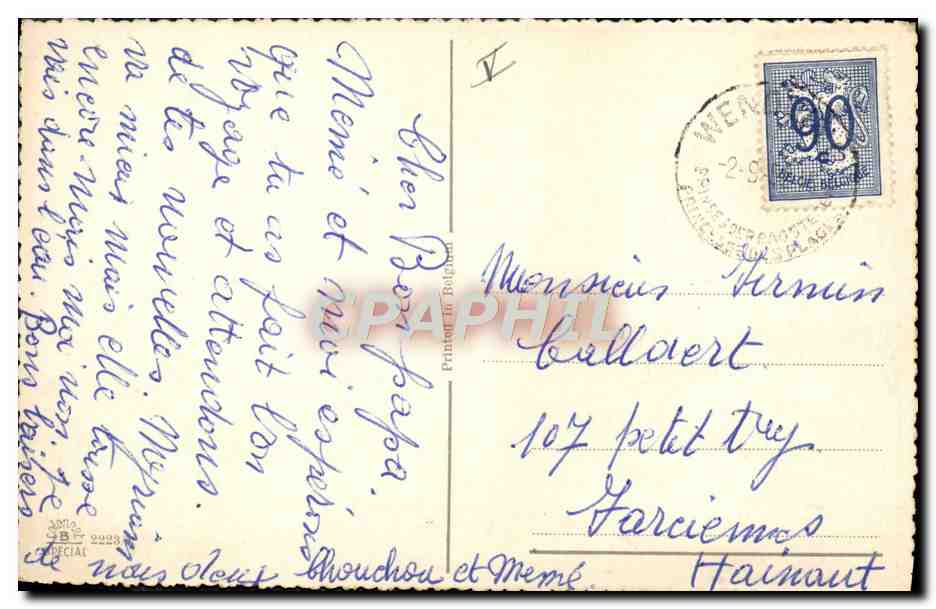 Cher Bon papa,
Memé et moi espérons
que tu as fait bon
voyage et attendons
de tes nouvelles. Myriam
va mieux mais elle tousse
encore. Mais moi non, je
vais dans l'eau. Bons baisers
de nous deux Chouchou et Memé.
V
Printed in Belgium
WEN
-2-9
90
c
BELGIE-BELGIQUE
Monsieur Firmin
Callaert
107 petit Try
Farciennes
Hainaut
B
SPECIAL
2223
CPAPHIL